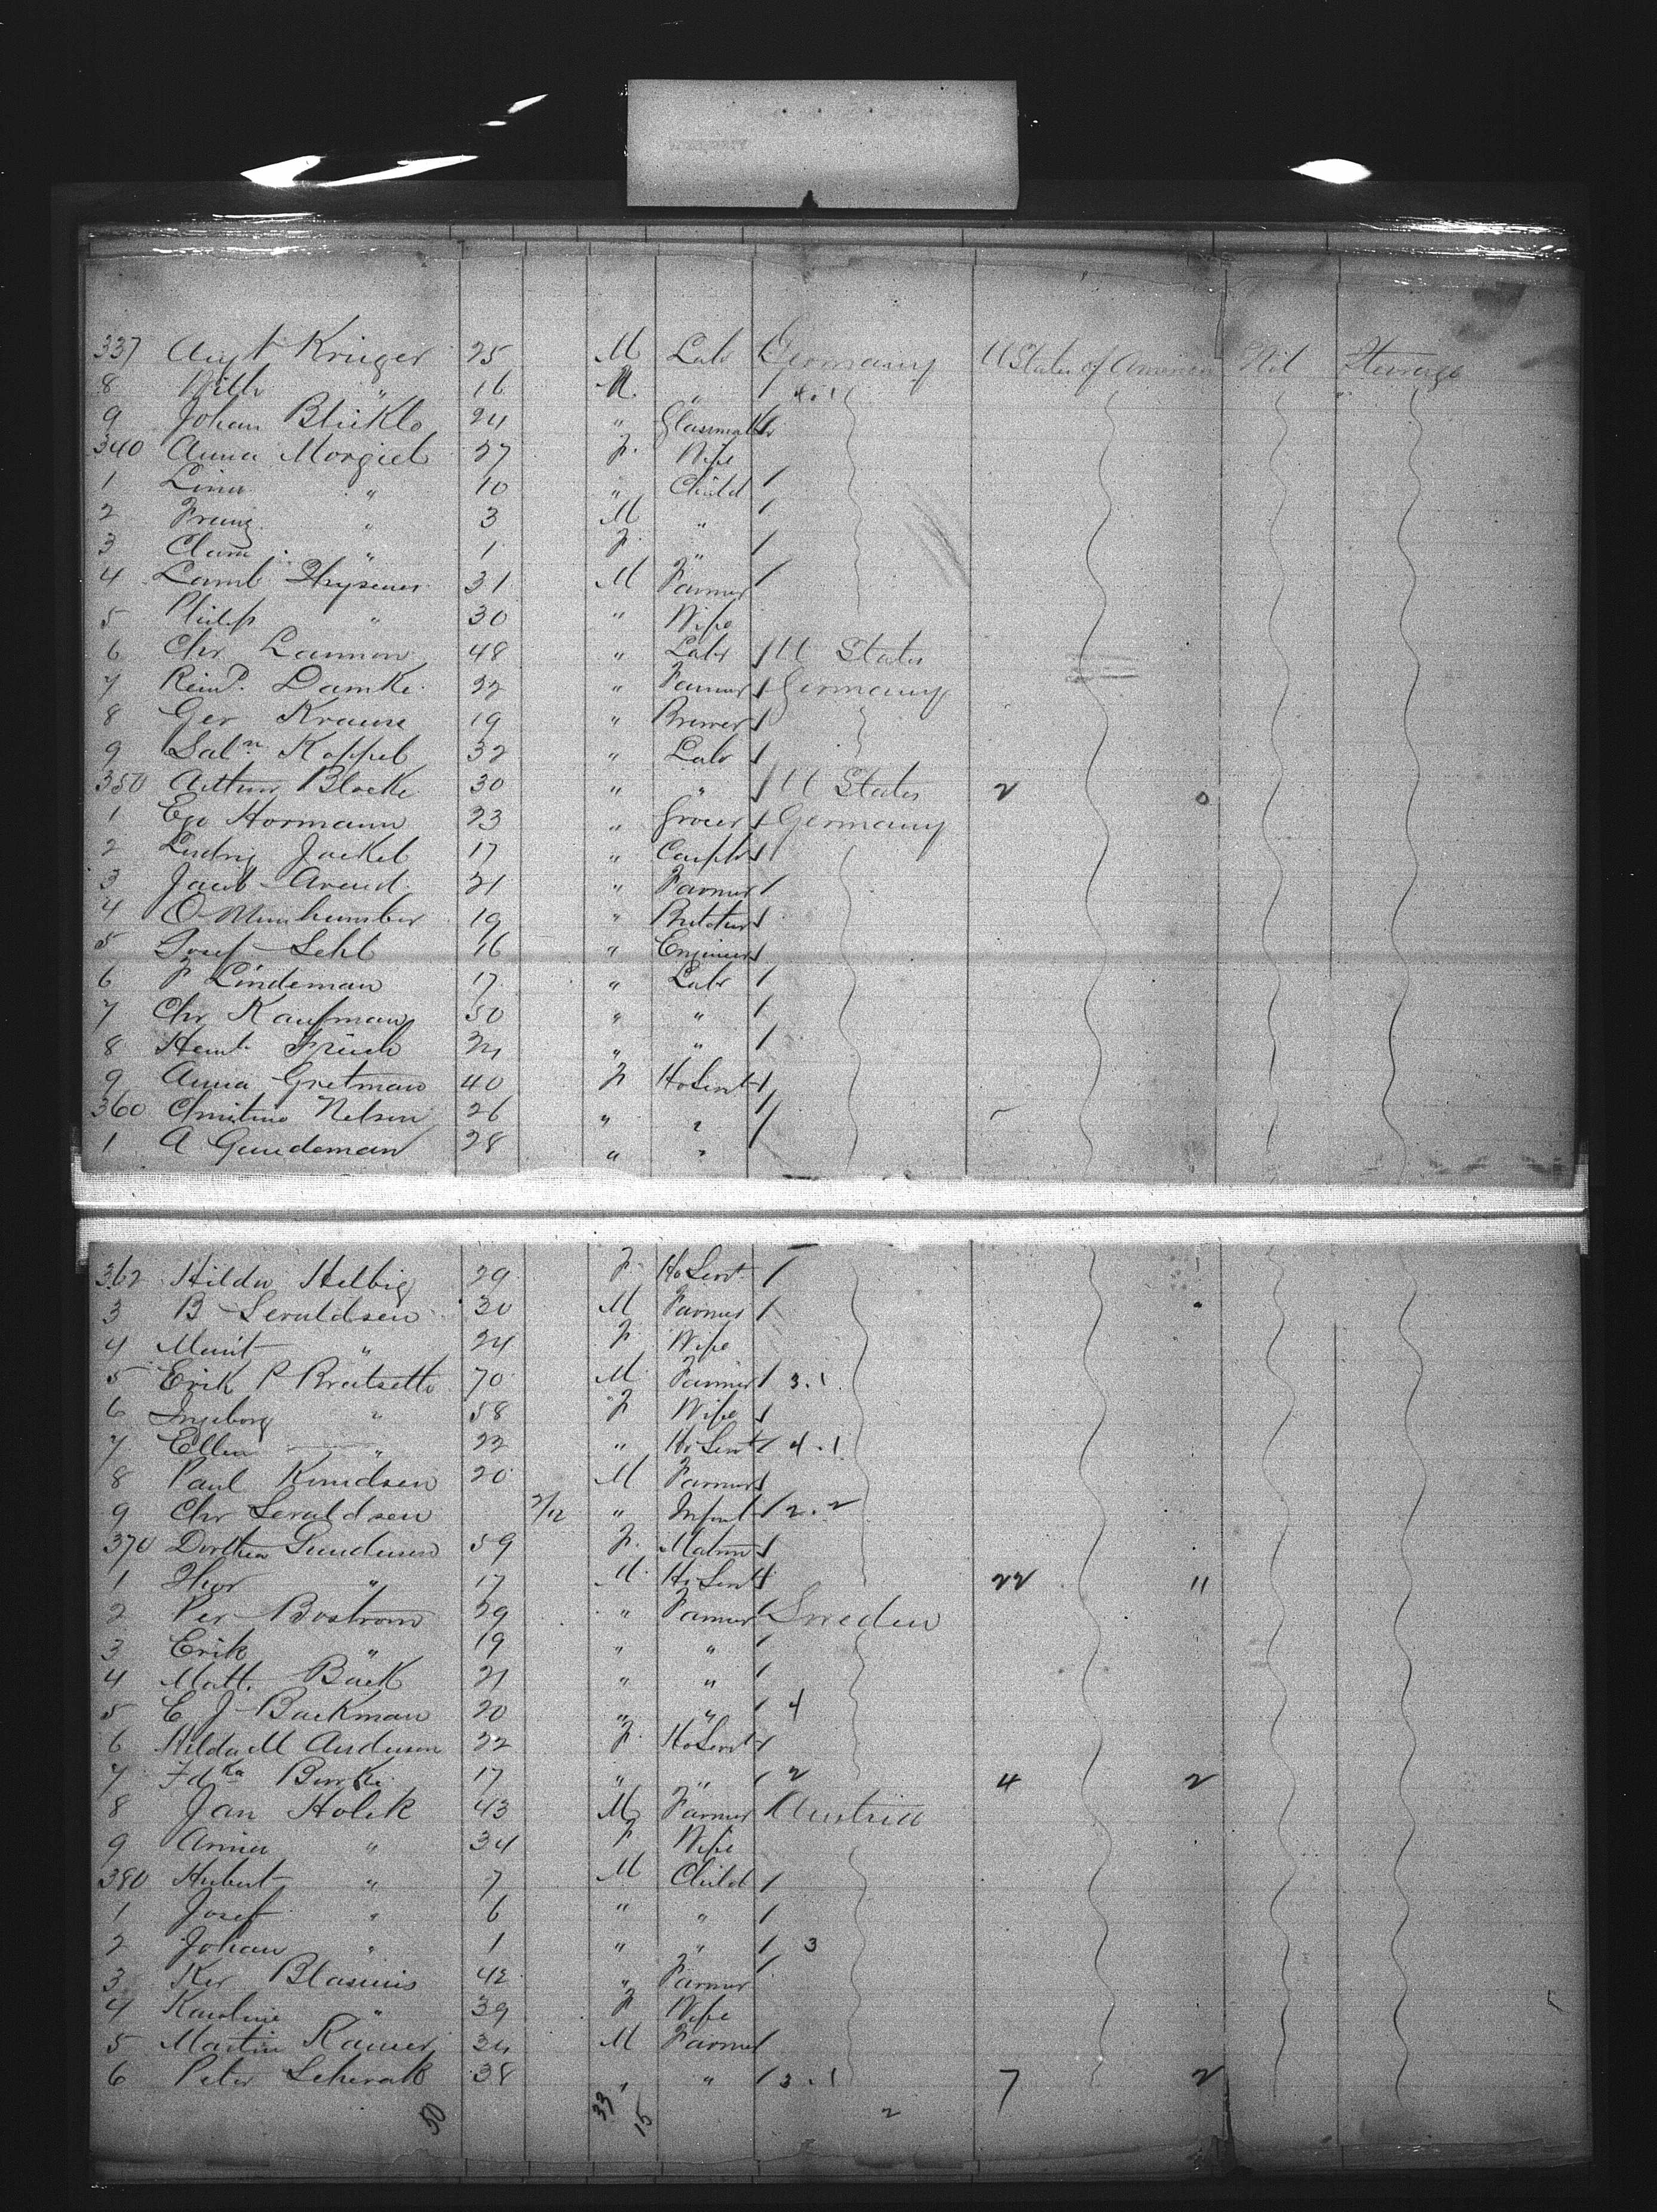 337 Augt Krieger 25 M Labr Germany U States of America Nil Steerage
8 Wilh " 16 M " 4.1
9 Johan Blicklo 24 " Glassmaker
340 Anna Morgiel 27 F. Wife
1 Lina " 10 " Child
2 Franz " 3 M "
3 Clara " 1 F. "
4 Lamb Thyssens 31 M Farmer
5 Philip " 30 " Wife
6 Chr Lannon 48 " Labr U States
7 Reind. Damke 32 " Farmer Germany
8 Ger Krause 19 " Brewer
9 Saln Koppel 32 " Labr
350 Arthur Blocke 30 " " U States 2 0
1 Eu Hormann 23 " Grocer Germany
2 Ludvig Jackel 17 " Carptr
3 Jacob Arend 21 " Farmer
4 O 19 " Butcher
5 Josef Sehl 16 " Engineer
6 F Lindeman 17 " Labr
7 Chr Kaufman 50 " "
8 Frisch " "
9 Anna Gretman 40 F HoServt
360 Christine Nelson 26 " "
1 A Gundeman 28 " "
362 Hilda Helbig 29 F. HoServt
3 B Seraldsen 30 M Farmer
4 Marit " 24 F. Wife
5 Erik P Bratsette 70 M Farmer 3.1
6 Ingeborg " 58 F Wife
7 Ellen " 22 " HoServt 4.1
8 Paul Knudsen 20 M Farmer
9 Chr Seraldsen 2/12 " Infant 2.2
370 Dorthea Gundersen 59 F. Matron
1 Thor " 17 M. HoServt 22 11
2 Per Bostrom 29 " Farmer Sweden
3 Erik " 19 " "
4 Matt. Back 21 " "
5 C J Backman 20 " " 4
6 Hilda M Anderson 22 F. HoServt
7 Fdka Burke 17 " " 2 4 2
8 Jan Holek 43 M Farmer Austria
9 Anna " 34 F Wife
380 Hubert " 7 M Child
1 Josef " 6 " "
2 Johan " 1 " " 3
3 Ker Blasius 42 " Farmer
4 Karoline " 39 F Wife
5 Martin Kamer 34 M Farmer
6 Peter Scherak 38 " " 3.1 7 2
50 33 15 2